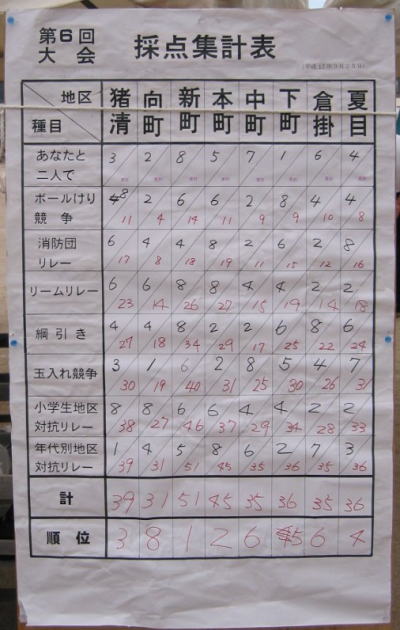 第6回
大会
採点集計表
地区 猪清 向町 新町 本町 中町 下町 倉掛 夏目
種目
あなたと 3 2 8 5 7 1 6 4
二人で
ボールけり 8 2 6 6 2 8 4 4
競争 11 4 14 11 9 9 10 8
消防団 6 4 4 8 2 6 2 8
リレー 17 8 18 19 11 15 12 16
リームリレー 6 6 8 8 4 4 2 2
23 14 26 27 15 19 14 18
綱引き 4 4 8 2 2 6 8 6
27 18 34 29 17 25 22 24
玉入れ競争 3 1 6 2 8 5 4 7
30 19 40 31 25 30 26 31
小学生地区 8 8 6 6 4 4 2 2
対抗リレー 38 27 46 37 29 34 28 33
年代別地区 1 4 5 8 6 2 7 3
対抗リレー 39 31 51 45 35 36 35 36
計 39 31 51 45 35 36 35 36
順位 3 8 1 2 6 5 6 4